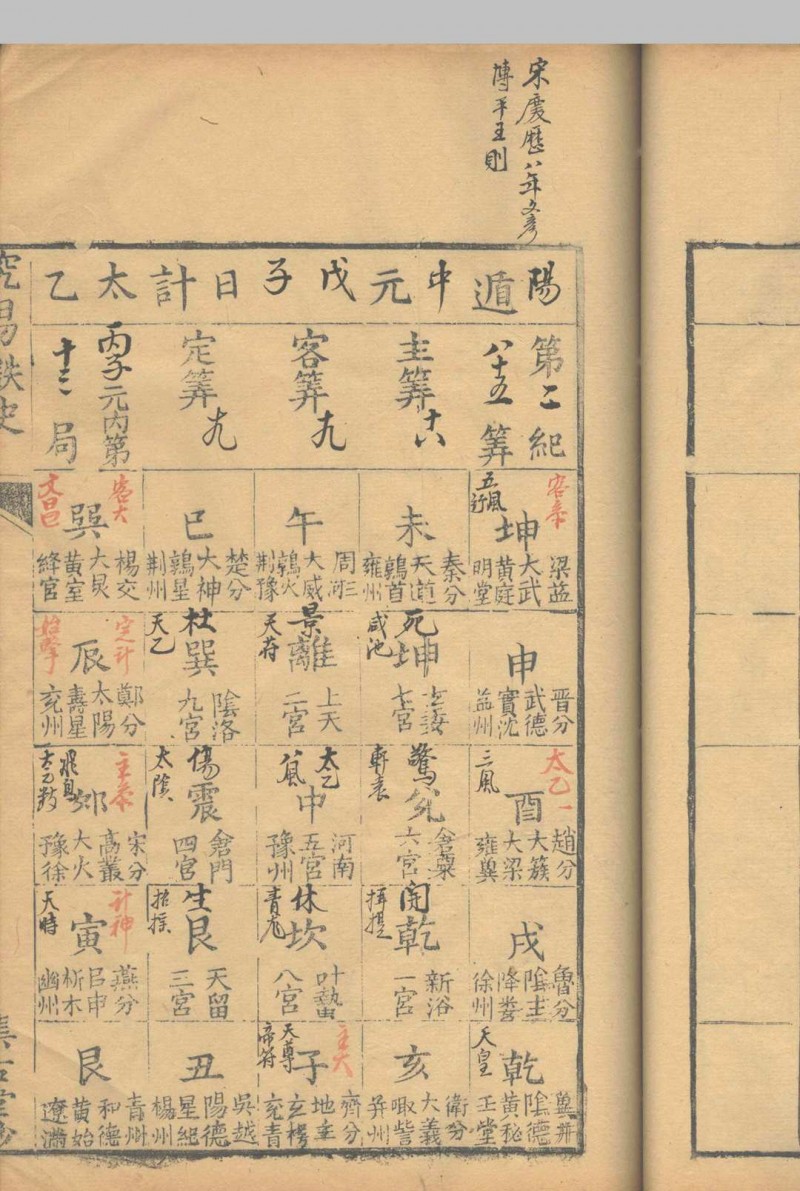 宋慶曆八年文彥
博平王則
陽遁中元戊子日計太乙
第二紀
八十五筭
主筭十八
客筭九
定筭九
丙子元内第
十三局
客參
坤
五風
五行
梁益
大武
黄庭
明堂
未
秦分
天道
鶉首
雍州
午
周
大威
鶉火
荆豫
巳
楚分
大神
鶉星
荆州
客大
巽
文昌
楊交
大炅
黄室
絳宫
申
晋分
武德
實沈
益州
死
坤
咸池
七宫
景
離
天符
上天
二宫
杜
巽
天乙
陰洛
九宫
定計
辰
始擊
鄭分
太陽
壽星
兖州
太乙一
酉
三風
趙分
大簇
大梁
雍兾
驚
兊
軒袁
倉粟
六宫
太乙
中
河南
五宫
豫州
傷
震
太陰
倉門
四宫
主參
卯
飛鳥
宋分
高叢
大火
豫徐
戌
魯分
陰主
降娄
徐州
開
乾
新浴
一宫
休
坎
青龙
叶蟄
八宫
生
艮
招摇
天留
三宫
計神
寅
天時
燕分
吕申
析木
幽州
乾
天皇
陰德
黄秘
玉堂
亥
衛分
大義
娵訾
并州
主大
子
天尊
帝符
齊分
地主
玄枵
兖青
丑
吳越
陽德
星紀
楊州
艮
青州
和德
黄始
遼瀋